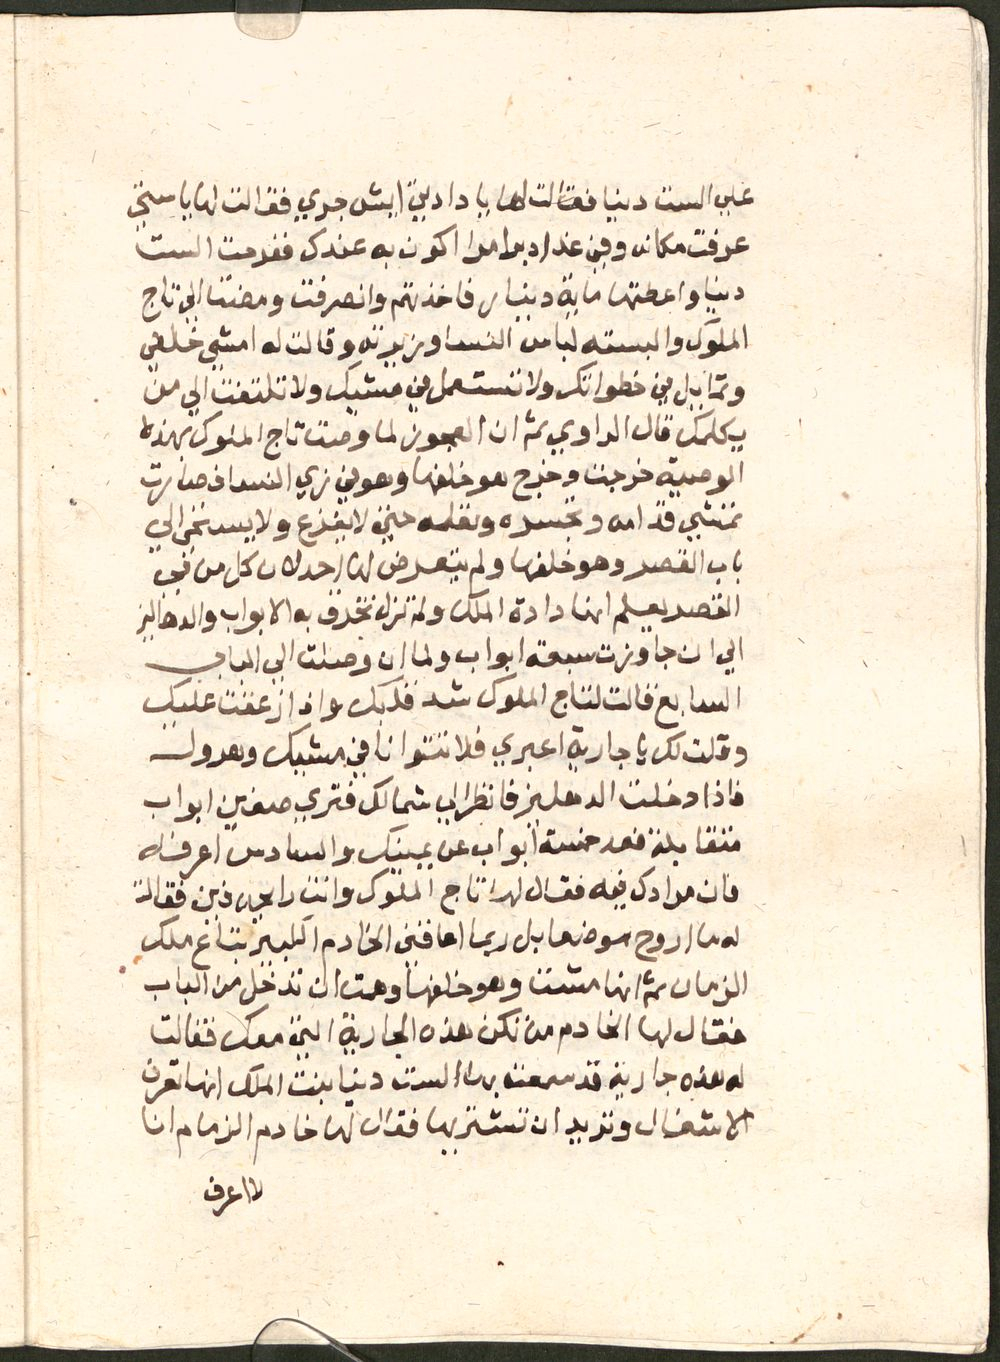 علي الست دنيا فقالت لها يا دادتي ايش جري فقالت لها يا ستي
عرفت مكانه وفي غداة غدا اكون به عندك ففرحت الست
دنيا واعطتها ماية دينار فاخذتهم وانصرفت ومضت الي تاج
الملوك والبسته لباس النسا وزينته وقالت له امشي خلفي
وتمايل في خطواتك ولا تستعجل في مشيك ولا تلتفت الي من
يكلمك قال الراوي ثم ان العجوز لما وصت تاج الملوك بهذه
الوصية خرجت وخرج هو خلفها وهو في زي النسا فصارت
تمشي قدامه وتجسره وتعلمه حتي لا يفزع ولا يستحي الي
باب القصر وهو خلفها ولم يتعرض لها احد لان كل من في
القصر يعلم انها دادة الملك ولم تزل تخرق به الابواب والدهاليز
الي ان جاوزت سبعة ابواب ولما ان وصلت الي الباب
السابع قالت لتاج الملوك شد قلبك واذا زعقت عليك
وقلت لك يا جارية اعبري فلا تتوانا في مشيك وهرول
فاذا دخلت الدهليز فانظر الي شمالك فتري صفين ابواب
متقابلة فعد خمسة أبواب عن يمينك والسادس اعرفه
فان مرادك فيه فقال لها تاج الملوك وانت رايحه فين فقالت
له ما اروح موضعا بل ربما اعاقني الخادم الكبير بتاع ملك
الزمان ثم انها مشت وهو خلفها وهمت ان تدخل من الباب
فقال لها الخادم من تكن هذه الجارية التي معك فقالت
له هذه جارية قد سمعت بها الست دنيا بنت الملك انها تعرف
الاشغال وتريد ان تشتريها فقال لها خادم الزمام انا
لا اعرف